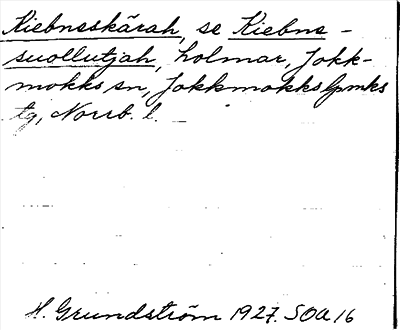 Kiebneskårah, se Kiebne-
suollutjah, holmar, Jokk-
mokks sn, Jokkmokks lpmks
tg, Norrb. l.
H. Grundström 1927. SOA 16